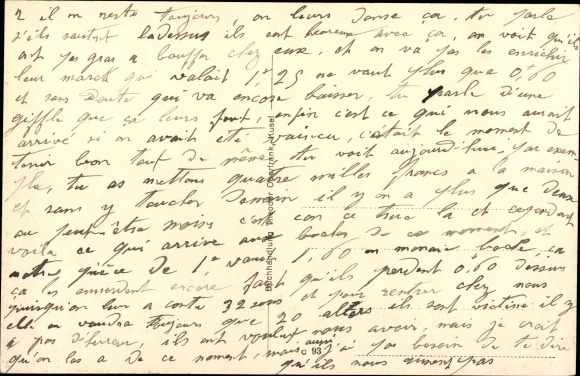 2 il m reste toujours, on leurs donse ça, tu parle
s'ils sautent ladessus ils ont heureux avec ça, on voit qu'ils
ont pas gras a bouffer chez eux, et on va pas les enrichir
leur marck qui valait 1,25 ne vaut plus que 0,60
et sans doute qui va encore baisser, tu parle d'une
giffle que ça leurs fout, enfin c'est ce qui nous aurait
arrivé si on avait été vaincu, c'était le moment de
tenir bon tout de même, tu voit aujourd'hui par exem
ple, tu as mettons quatre milles francs a la maison
et sans y toucher demain il y en a plus que deux
ou peut être moins c'est con ce truc la et cependant
voila ce qui arrive aux boches de ce moment, et
notre pièce de 1, vaut 1,60 en monaie boche, ça
ça les emmerdent encore faut qu'ils perdent 0,60 dessus
puisqu'on leur a conté 32 sous et pour rentrer chez nous
elle en vaudra toujours que 20 alors ils sont victime il y
a pas d'erreur, ils ont voulut nous avoir mais je crois
qu'on les a de ce moment, mais aussi j'ai pas besoin de te dire
qu'ils nous aiment pas
Buchhandlung Theodor Oberfrank, Kusel
C 93